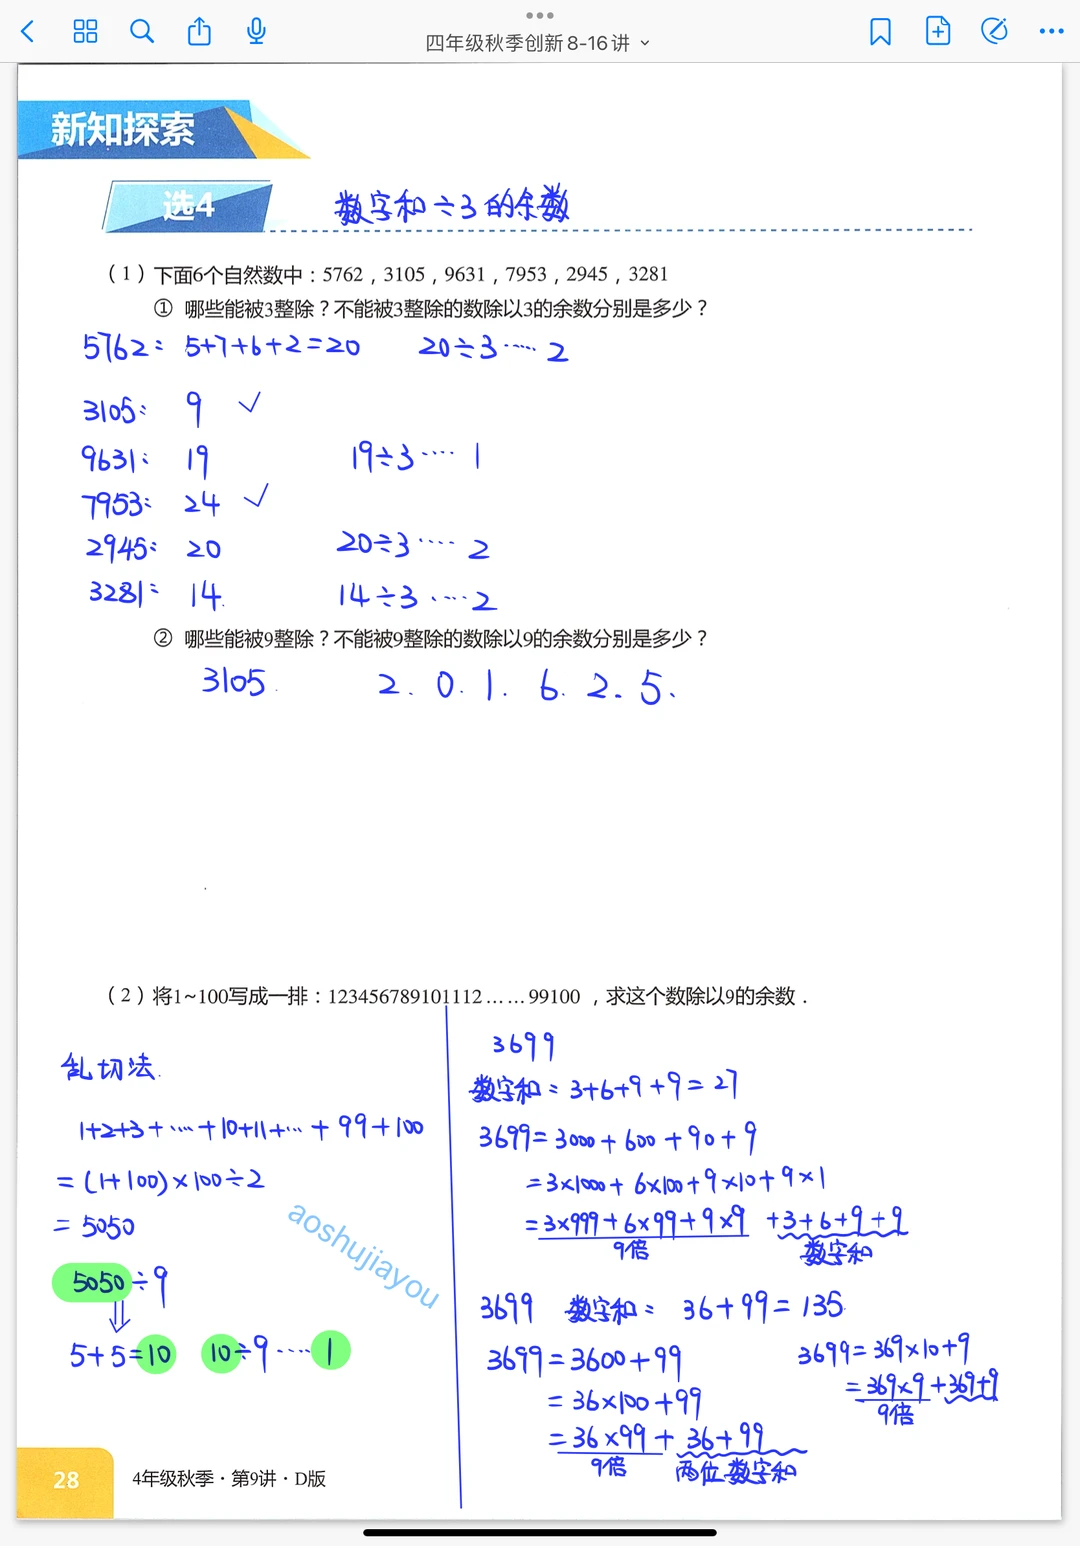 四年级秋季创新8-16讲
新知探索
选4
数字和÷3的余数
（1）下面6个自然数中：5762，3105，9631，7953，2945，3281
① 哪些能被3整除？不能被3整除的数除以3的余数分别是多少？
5762： 5+7+6+2=20 20÷3……2
3105： 9 ✓
9631： 19 19÷3…… 1
7953： 24 ✓
2945： 20 20÷3…… 2
3281： 14. 14÷3……2
② 哪些能被9整除？不能被9整除的数除以9的余数分别是多少？
3105. 2. 0. 1. 6. 2. 5.
（2）将1~100写成一排：123456789101112……99100，求这个数除以9的余数．
乱切法.
1+2+3+……+10+11+…+99+100
=(1+100)×100÷2
=5050
5050÷9
⇓
5+5=10 10÷9……1
3699
数字和=3+6+9+9=27
3699=3000+600+90+9
=3×1000+6×100+9×10+9×1
=3×999+6×99+9×9 +3+6+9+9
9倍 数字和
3699 数字和= 36+99=135
3699=3600+99
=36×100+99
=36×99+36+99
9倍 两位数字和
3699=369×10+9
=369×9+369+9
9倍
aoshujiayou
28
4年级秋季·第9讲·D版